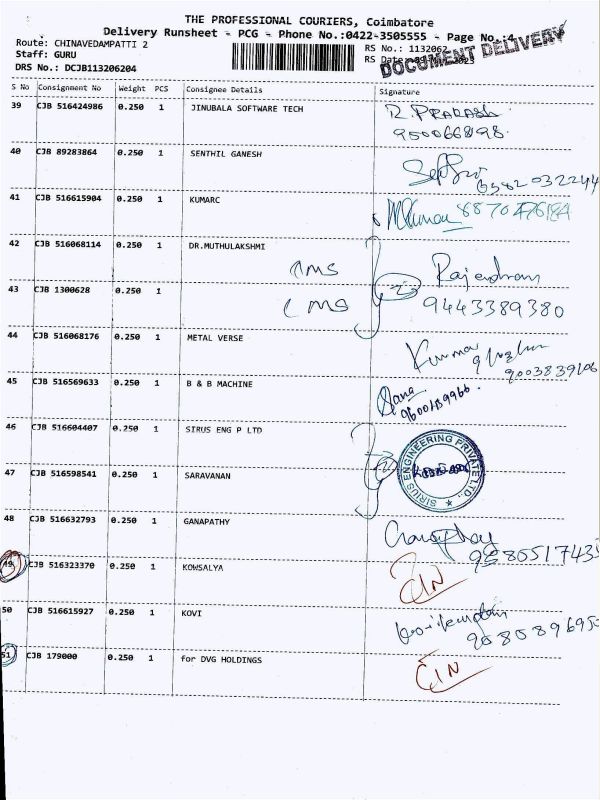 THE PROFESSIONAL COURIERS, Coimbatore
Delivery Runsheet - PCG - Phone No.:0422-3505555 - Page No.:4
Route: CHINAVEDAMPATTI 2
RS No.: 1132062
Staff: GURU
DOCUMENT DELIVERY
DRS No.: DCJB113206204
S No Consignment No Weight PCS Consignee Details Signature
39 CJB 516424986 0.250 1 JINUBALA SOFTWARE TECH R. PRAKASH
9500668198
40 CJB 89283864 0.250 1 SENTHIL GANESH
6382032244
41 CJB 516615904 0.250 1 KUMARC
42 CJB 516068114 0.250 1 DR.MUTHULAKSHMI
Rajendran
43 CJB 1300628 0.250 1
9443389380
44 CJB 516068176 0.250 1 METAL VERSE Kumar
9003839106
45 CJB 516569633 0.250 1 B & B MACHINE
9600189966
46 CJB 516604407 0.250 1 SIRUS ENG P LTD
SIRIUS ENGINEERING PRIVATE LTD.,
47 CJB 516598541 0.250 1 SARAVANAN
48 CJB 516632793 0.250 1 GANAPATHY
49 CJB 516323370 0.250 1 KOWSALYA
50 CJB 516615927 0.250 1 KOVI
51 CJB 179000 0.250 1 for DVG HOLDINGS